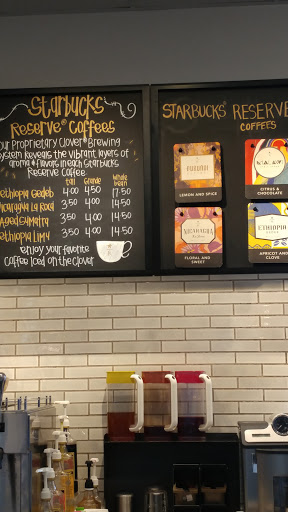 Starbucks
Reserve® Coffees
our Proprietary Clover® Brewing
System Reveals the vibrant layers of
aroma & flavors in each Starbucks
Reserve Coffee
tall Grande Whole bean
ethiopia Gedeb 4.00 4.50 17.50
Nicaragua La Roca 3.50 4.00 14.50
Aged Sumatra 3.50 4.00 14.50
ethiopia Limu 3.50 4.00 14.50
enjoy your favorite
coffee iced on the clover
STARBUCKS® RESERVE
COFFEES
BURUNDI
LEMON AND SPICE
CITRUS &
CHOCOLATE
NICARAGUA
FLORAL AND
SWEET
ETHIOPIA
APRICOT AND
CLOVE